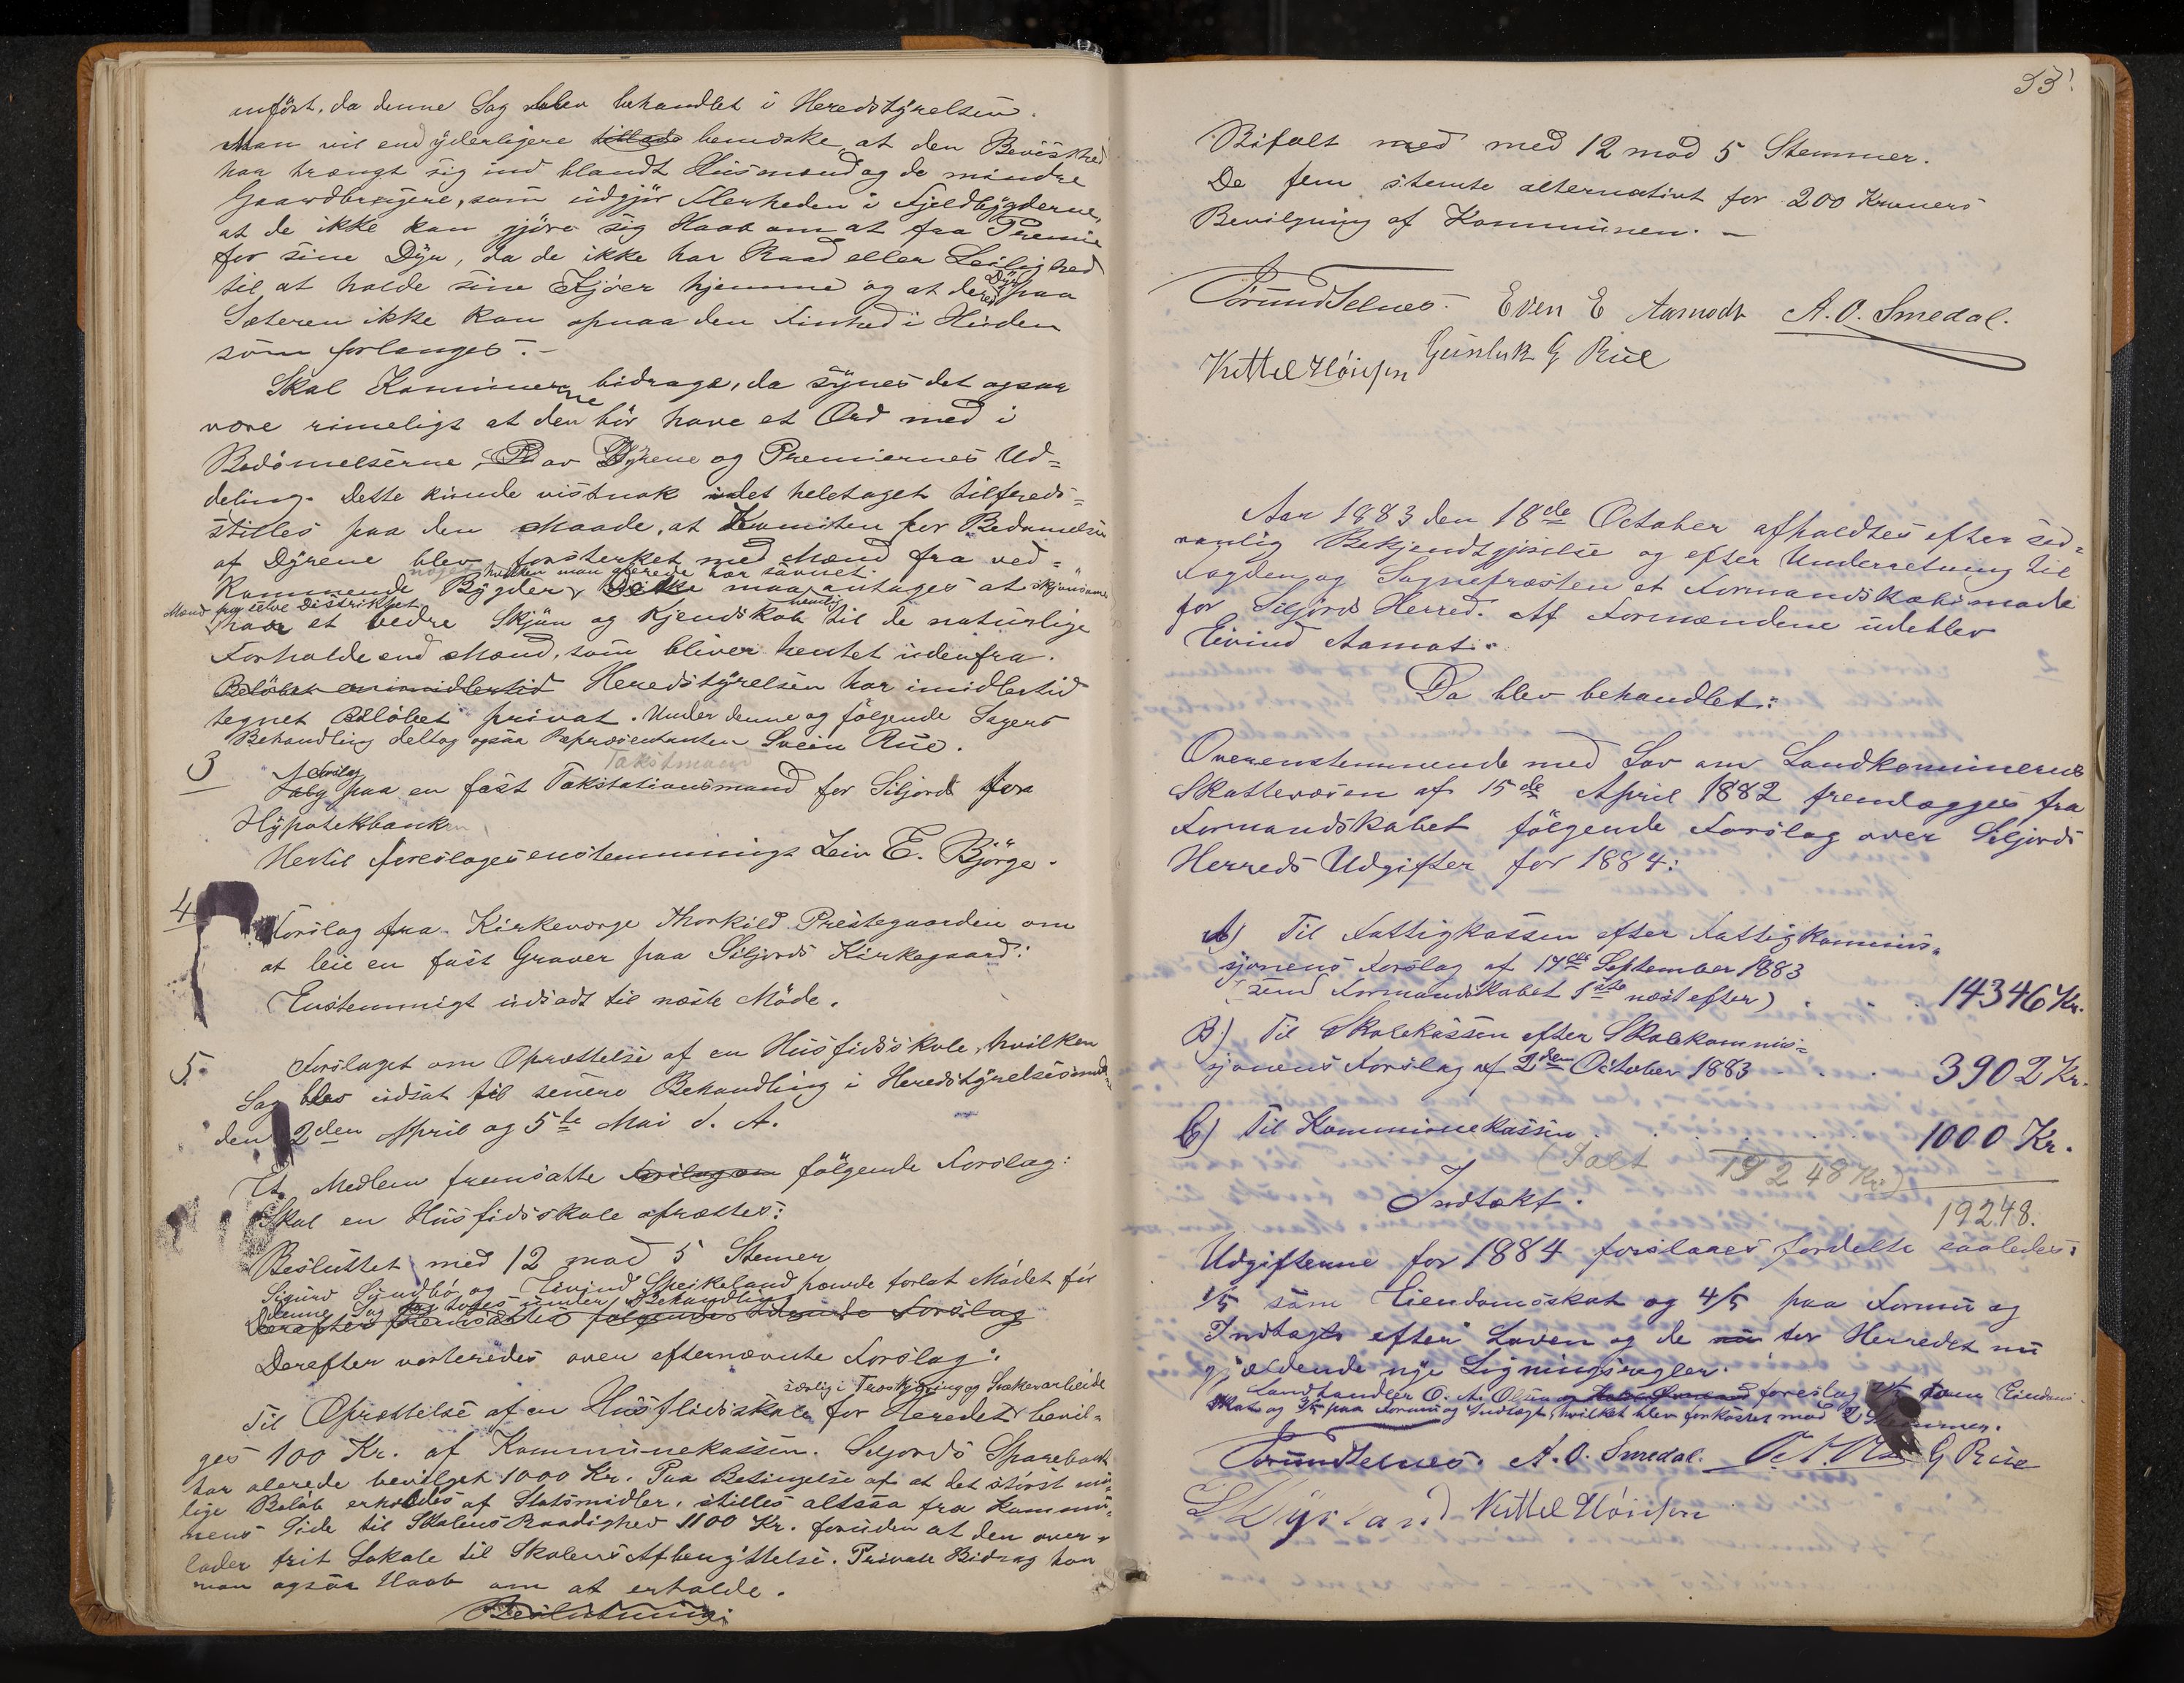 anfört, da denne Sag blev behandlet i Heredstÿrelsen.
Man vil end ÿderligere tillade bemærke, at den Bevisthed
har trængt sig ind blandt Husmænd og de mindre
Gaardbrugere, som udgjör Flerheden i Fjeldbÿgderne,
at de ikke kan gjöre sig Haab om at faa Premie
for sine Dÿr, da de ikke har Raad eller Leilighed
til at holde sine Kjöer hjemme og at deres Dÿr paa
Sæteren ikke kan opnaa den Finhed i Huden
som forlanges. –
Skal Kommunerne bidrage, da sÿnes det ogsaa
være rimeligt at den bör have et Ord med i
Bedömelserne, av Dÿrene og Premiernes Ud=
deling. Dette kunde vistnok i det heletaget tilfreds=
stilles paa den Maade, at Komiten for Bedømelsen
af Dÿrene blev forsterket med Mænd fra ved=
noget hvilken man allerede har savnet.
kommende Bÿgder. Dette maa antages at skjönsomme
Mænd fra selve Distriktet nemlig
har et bedre Skjön og Kjendskab til de naturlige
Forholde end Mænd, som bliver hentet udenfra.
Belöbet er imidlertid Heredstÿrelsen har imidlertid
tegnet Belöbet privat. Under denne og fölgende Sagers
Behandling deltog ogsaa Repræsentanten Svein Rue.
Takstmand
3 Valg Forslag paa en fast Takstationsmand for Siljord fra
Hÿpotekbanken
Hertil foreslages enstemmingt Leiv E. Björge.
4 Forslag fra Kirkeværge Thorkild Prestegaarden om
at leie en fast Graver paa Siljords Kirkegaard:
Enstemmigt udsadt til næste Möde.
5. Forslaget om Oprettelse af en Husflidsskole, hvilken
Sag blev udsat til senere Behandling i Heredstÿrelsesmøde
den 2den April og 5te Mai d. A.
Et Medlem fremsatte Forslag om fölgende Forslag:
Skal en Husfidsskole oprættes:
Besluttet med 12 mod 5 Stemer
Sigurd Sundbö og Eivind Speikeland havde forlat Mödet för
denne Sag toges under Behandling
Derefter fremsattes folgende Forslag
Derefter voteredes over efternævnte Forslag:
særlig i Træskjæring og Snekerarbeide
Til Oprættelse af en Husflidsskole for Heredet bevil=
ges 100 Kr. af Kommunekassen. Seljords Sparebank
har alerede bevilget 1000 Kr. Paa Betingelse af at det störst mu=
lige Belöb erholdes af Statsmidler, stilles altsaa fra Kommu=
nens Side til Skolens Raadighed 1100 Kr. foruden at den over=
lader frit Lokale til Skolens Afbenÿttelse. Private Bidrag har
man ogsaa Haab om at erholde.
Beslutning:
53!
Bifalt med med 12 mod 5 Stemmer.
De fem stemte alternativt for 200 Kroners
Bevilgning af Kommunen. –
Jörund Telnes. Even E Aamodt A. O. Smedal.
Kittel Höisen Gunluk G Rue
Aar 1883 den 18de October afholdtes efter sed=
vanlig Bekjendtgjörelse og efter Underretning til
Fogden og Sognepræsten et Formandskabsmøde
for Siljords Herred. Af Formændene udeblev
Eivind Aamot.
Da blev behandlet:
Overenstemmende med Lov om Landkommunerns
Skattevæsen af 15de April 1882 fremlægges fra
Formandskabet fölgende Forslag over Siljords
Herreds Udgifter for 1884:
A) Til Fattigkassen efter Fattigkommis=
sjonens Forslag af 17de September 1883
(send Formandskabet 1ste næst efter) . . . 14346 Kr.
B) Til Skolekassen efter Skolekommis=
sjonens Forslag af 2den October 1883 . . . 3902 Kr.
C) Til Kommunekassen . . . 1000 Kr.
(Ialt 19248 Kr.)
19248.
Indtækt.
Udgifterne for 1884 forslaaes fordelte saaledes:
1/5 som Eiendomsskat og 4/5 paa Formu og
Indtægt efter Loven og de nu for Herredet nu
gjældende nye Ligningsregler.
Landhandler O. A. Olsen foreslag 2/5 som Eiendoms
skat og 3/5 paa Formu og Indtægt, hvilket blev forkastet mod 2 Stemmer.
Jörund Telnes. A. O. Smedal. G Rue
Kittel Höisen